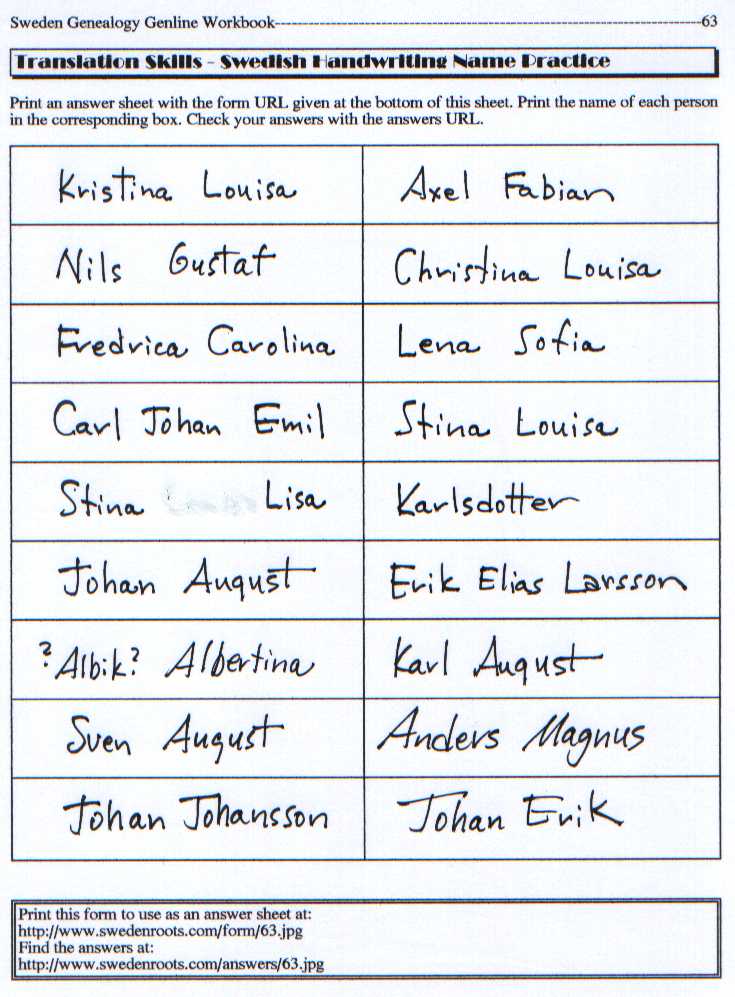 Sweden Genealogy Genline Workbook-----63
Translation Skills - Swedish Handwriting Name Practice
Print an answer sheet with the form URL given at the bottom of this sheet. Print the name of each person
in the corresponding box. Check your answers with the answers URL.
Kristina Louisa Axel Fabian
Nils Gustaf Christina Louisa
Fredrica Carolina Lena Sofia
Carl Johan Emil Stina Louisa
Stina Lisa Karlsdotter
Johan August Erik Elias Larsson
?Albik? Albertina Karl August
Sven August Anders Magnus
Johan Johansson Johan Erik
Print this form to use as an answer sheet at:
http://www.swedenroots.com/form/63.jpg
Find the answers at:
http://www.swedenroots.com/answers/63.jpg